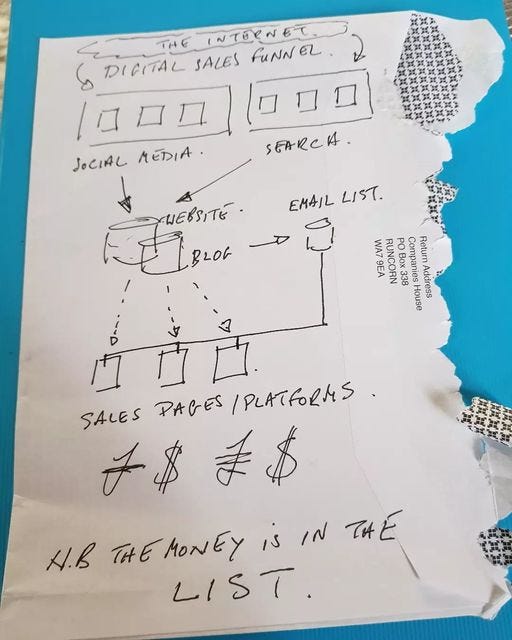 THE INTERNET.
DIGITAL SALES FUNNEL.
SOCIAL MEDIA.
SEARCH.
WEBSITE.
EMAIL LIST.
BLOG
Return Address
Companies House
PO Box 338
RUNCORN
WA7 9EA
SALES PAGES/PLATFORMS.
£ $ £ $
N.B THE MONEY IS IN THE
LIST.